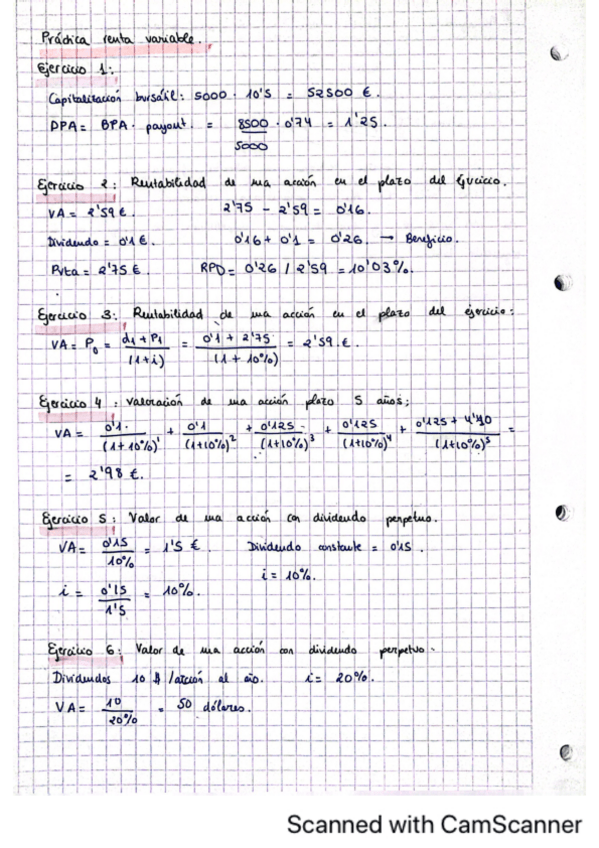 Práctica renta variable.
Ejercicio 1:
Capitalización bursátil: 5000 · 10'5 = 52500 €.
DPA = BPA · payout. = 8500/5000 · 0'74 = 1'25.
Ejercicio 2: Rentabilidad de una acción en el plazo del ejercicio.
VA = 2'59 €. 2'75 - 2'59 = 0'16.
Dividendo = 0'1 €. 0'16 + 0'1 = 0'26. → Beneficio.
Pvta = 2'75 €. RPD = 0'26 / 2'59 = 10'03%.
Ejercicio 3: Rentabilidad de una acción en el plazo del ejercicio:
VA = P₀ = (d₁ + P₁)/(1+i) = (0'1 + 2'75)/(1 + 10%) = 2'59 €.
Ejercicio 4: Valoración de una acción plazo 5 años;
VA = 0'1/(1+10%)¹ + 0'1/(1+10%)² + 0'125/(1+10%)³ + 0'125/(1+10%)⁴ + (0'125 + 4'10)/(1+10%)⁵ =
= 2'98 €.
Ejercicio 5: Valor de una acción con dividendo perpetuo.
VA = 0'15/10% = 1'5 €. Dividendo constante = 0'15.
i = 10%.
i = 0'15/1'5 = 10%.
Ejercicio 6: Valor de una acción con dividendo perpetuo.
Dividendos 10 $ /acción al año. i = 20%.
VA = 10/20% = 50 dólares.
Scanned with CamScanner